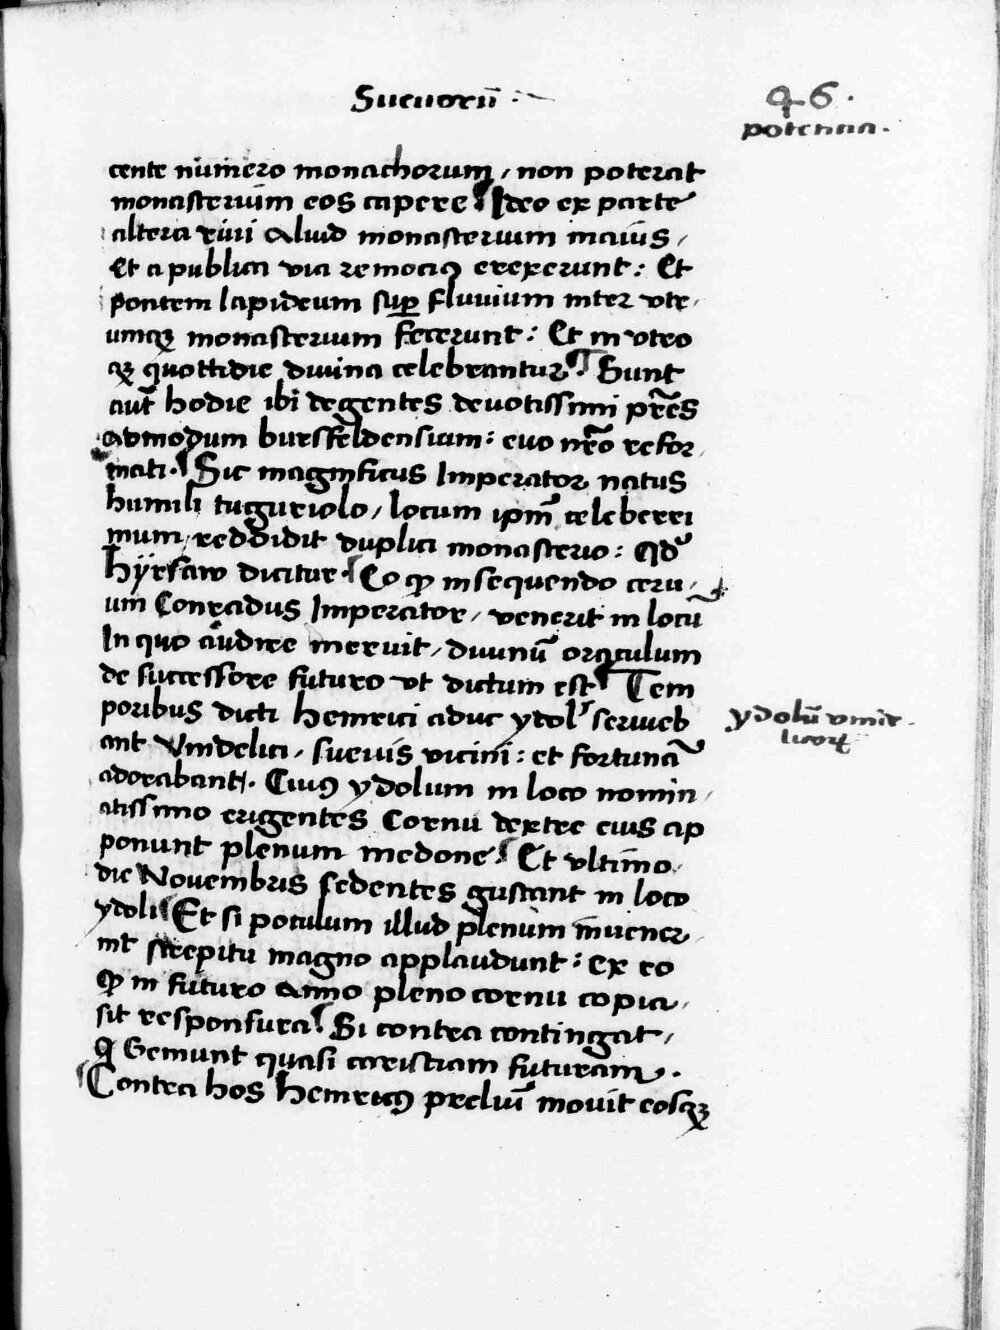 Sueuorū
46.
potentia.
cente numero monachorum, non poterat
monasterium eos capere Ideo ex parte
altera riui aliud monasterium maius,
Et a publica via remociꝰ erexerunt: Et
pontem lapideum suꝑ fluuium inter vtr,
umqꝫ monasterium fecerunt: Et in vtro
qꝫ quottidie diuina celebrantur Sunt
aūt hodie ibi degentes deuotissimi pr̄es
admodum bursfeldensium: euo nr̄o refor,
mati. Sic magnificus Imperator natus
humili tuguriolo, locum ipm̄ celeberri
mum, reddidit duplici monasterio: Qd̓
hÿrsaw dicitur. Eo ꝙ insequendo ceru,
um Conradus Imperator, venerit in locū
In quo audire meruit, diuinū oraculum
de successore futuro vt dictum est Tem
poribus dicti Heinrici aduc ydolʼ seruieb
ant Vindelici, sueuis vicini: et fortunā
adorabant. Cuiꝰ ydolum in loco nomin,
atissimo erigentes Cornu dextre eius ap
ponunt plenum medone Et vltimo
die Nouembris sedentes gustant in loco
ydoli Et si poculum illud plenum inuener,
int strepitu magno applaudunt: Ex eo
ꝙ in futuro anno pleno cornu copia,
sit responsura Si contra contingat,
Gemunt quasi caristiam futuram.
Contra hos Heinricꝰ preliū mouit eosqꝫ
ydolū vinde,
licoꝝ